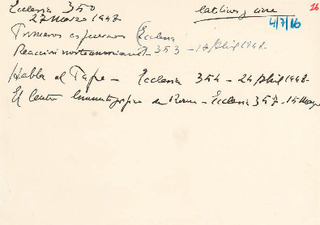 Ecclesia 350
27 marzo 1948
católicos y cine
26
4/7/86
Primeros esfuerzos Ecclesia
Reacción norteamericana 353 - 17 Abril 1948
Habla el Papa - Ecclesia 354 - 24 Abril 1948
El Centro Cinematográfico de Roma - Ecclesia 357 - 15 Mayo